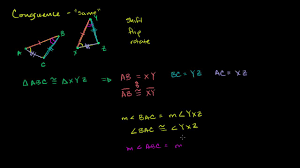 Congruence - "same"
shift
flip
rotate
A
B
C
X
Y
Z
△ABC ≅ △XYZ ⟹ AB = XY BC = YZ AC = XZ
&
A̅B̅ ≅ X̅Y̅
m∠BAC = m∠YXZ
∠BAC ≅ ∠YXZ
m∠ABC = m